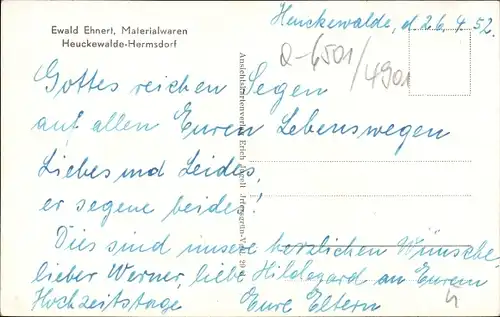 Ewald Ehnert, Materialwaren
Heuckewalde-Hermsdorf
Heuckewalde, d. 26. 4. 52.
Q-6501/4901
Gottes reichen Segen
auf allen Euren Lebenswegen
Liebes und Leides,
er segene beides!
Dies sind unsere herzlichen Wünsche
lieber Werner, liebe Hildegard an Eurem
Hochzeitstage Eure Eltern
Ansichtskartenverlag Erich